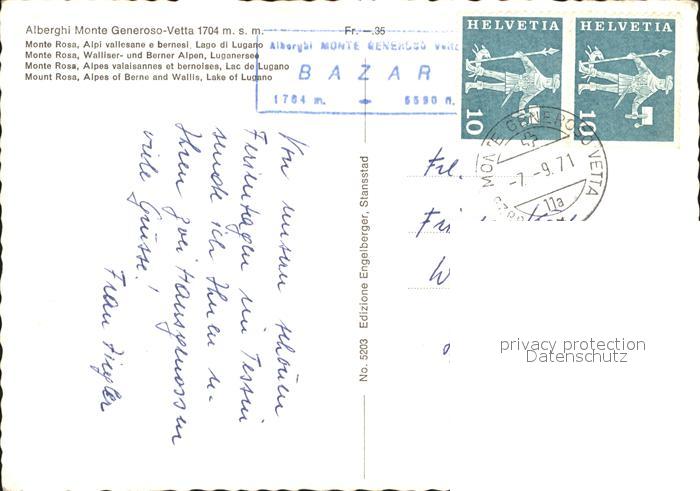 Alberghi Monte Generoso-Vetta 1704 m. s. m.
Fr. —.35
Monte Rosa, Alpi vallesane e bernesi, Lago di Lugano
Monte Rosa, Walliser- und Berner Alpen, Luganersee
Monte Rosa, Alpes valaisannes et bernoises, Lac de Lugano
Mount Rosa, Alpes of Berne and Wallis, Lake of Lugano
Alberghi MONTE GENEROSO Vetta
BAZAR
1704 m. 5590 ft.
HELVETIA
10
HELVETIA
10
MONTE GENEROSO VETTA
-7.-9.71
11a
Von unseren schönen
Ferientagen im Tessin
sende ich Ihnen u.
Ihren zwei Hausgenossen
viele Grüsse!
Frau Ziegler
No. 5203 Edizione Engelberger, Stansstad
Frl.
W
privacy protection
Datenschutz